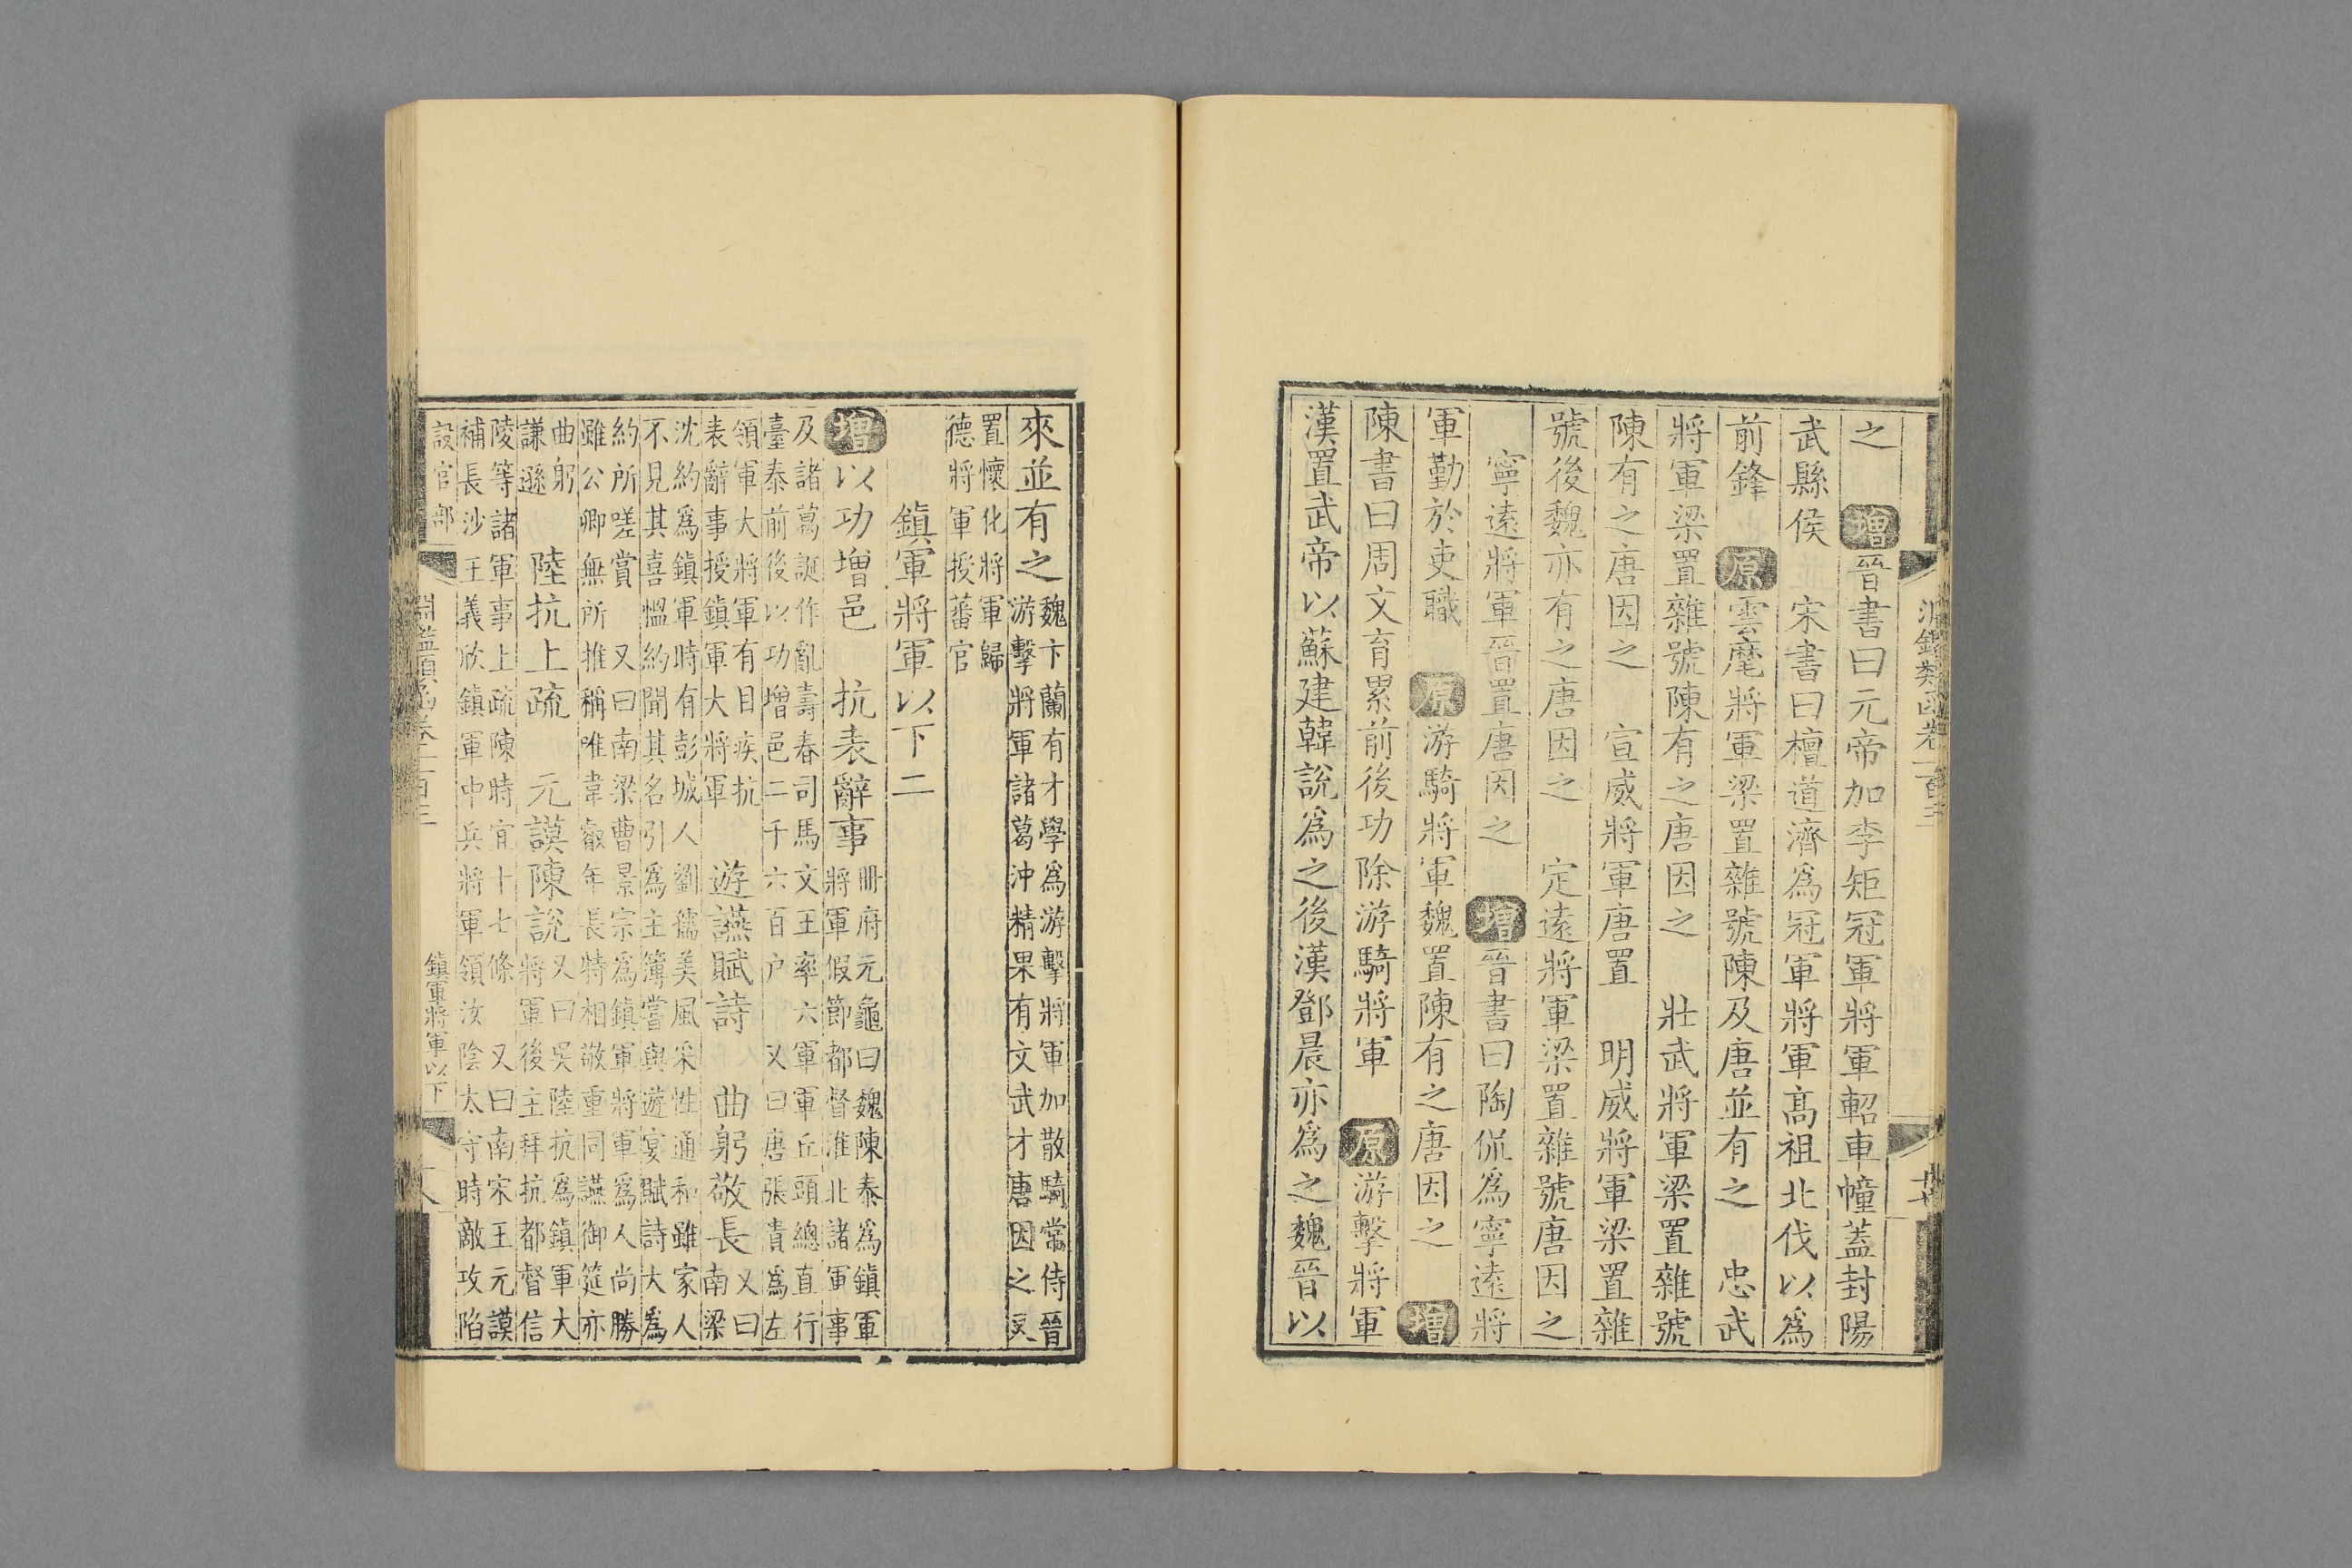 淵鑑類函卷一百十
之　增晉書曰元帝加李矩冠軍將軍軺車幢蓋封陽
武縣侯　宋書曰檀道濟為冠軍將軍髙祖北伐以為
前鋒　原雲麾將軍梁置雜號陳及唐並有之　忠武
將軍梁置雜號陳有之唐因之　壯武將軍梁置雜號
陳有之唐因之　宣威將軍唐置　明威將軍梁置雜
號後魏亦有之唐因之　定遠將軍梁置雜號唐因之
寧遠將軍晉置唐因之　增晉書曰陶侃為寧遠將
軍勤於吏職　原游騎將軍魏置陳有之唐因之　增
陳書曰周文育累前後功除游騎將軍　原游擊將軍
漢置武帝以蘇建韓說為之後漢鄧晨亦為之魏晉以
來並有之魏卞蘭有才學為游擊將軍加散騎常侍晉
游擊將軍諸葛沖精果有文武才唐因之又
置懷化將軍歸
德將軍授蕃官
鎮軍將軍以下二
增以功增邑　抗表辭事冊府元龜曰魏陳泰為鎮軍
將軍假節都督淮北諸軍事
及諸葛誕作亂壽春司馬文王率六軍軍丘頭總直行
臺泰前後以功增邑二千六百户　又曰唐張責為左
領軍大將軍有目疾抗
表辭事授鎮軍大將軍　遊讌賦詩　曲躬敬長又曰
南梁
沈約為鎮軍時有彭城人劉孺美風采性通和雖家人
不見其喜愠約聞其名引為主簿嘗與遊宴賦詩大為
約所嗟賞　又曰南梁曹景宗為鎮軍將軍為人尚勝
雖公卿無所推稱唯韋叡年長特相敬重同讌御筵亦
曲躬
謙遜　陸抗上疏　元謨陳說又曰吳陸抗為鎮軍大
將軍後主拜抗都督信
陵等諸軍事上疏陳時宜十七條　又曰南宋王元謨
補長沙王義欣鎮軍中兵將軍領汝陰太守時敵攻陷
設官部　淵鑑類函卷一百十　鎮軍將軍以下